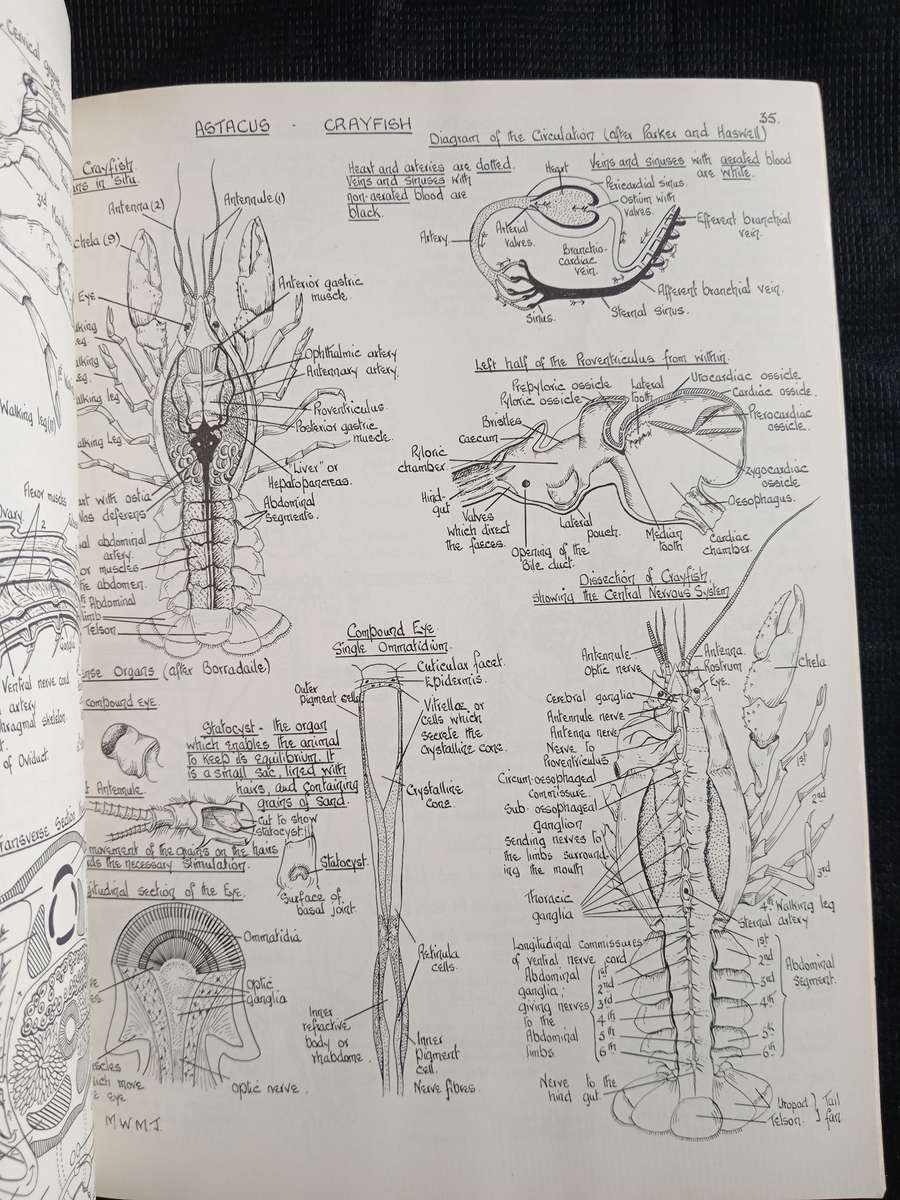 ASTACUS - CRAYFISH
35.
Crayfish
in Situ
Antenna (2)
Antennule (1)
Chela (9)
Eye
Anterior gastric
muscle.
Ophthalmic artery
Antennary artery.
Proventriculus.
Posterior gastric
muscle.
"Liver" or
Hepatopancreas.
Abdominal
Segments.
with ostia
Vas deferens
abdominal
artery.
muscles
abdomen.
Abdominal
limb
Telson
Diagram of the Circulation (after Parker and Haswell)
Heart and arteries are dotted.
Veins and Sinuses with
non-aerated blood are
black.
Veins and sinuses with aerated blood
are white.
Heart
Pericardial sinus.
Ostium with
valves.
Artery
Arterial
valves.
Branchio-
cardiac
vein.
Efferent branchial
vein.
Afferent branchial vein.
Sternal sinus.
Sinus.
Left half of the Proventriculus from within.
Prepyloric ossicle
Pyloric ossicle
Lateral
tooth
Urocardiac ossicle
Cardiac ossicle.
Pterocardiac
ossicle.
Bristles
Caecum
Pyloric
chamber.
Zygocardiac
ossicle
Oesophagus.
Hind-
gut
Valves
which direct
the faeces.
Opening of the
Bile duct.
Lateral
pouch.
Median
tooth
Cardiac
chamber.
Sense Organs (after Borradaile)
compound eye
Statocyst - the organ
which enables the animal
to keep its equilibrium. It
is a small sac, lined with
hairs, and containing
grains of sand.
Antennule.
Cut to show
statocyst
movement of the grains on the hairs
the necessary stimulation.
Statocyst.
Surface of
basal joint.
section of the Eye.
Ommatidia
Optic
ganglia
which move
Eye
Optic nerve.
M W M J.
Compound Eye
Single Ommatidium.
Cuticular facet.
Epidermis.
Outer
pigment cells
Vitrellae or
cells which
secrete the
crystalline cone.
Crystalline
cone.
Retinula
cells.
Inner
refractive
body or
rhabdome.
Inner
pigment
cell.
Nerve fibres.
Dissection of Crayfish
showing the Central Nervous System
Antennule
Optic nerve
Antenna.
Rostrum
Eye.
Chela
Cerebral ganglia
Antennule nerve
Antenna nerve
Nerve to
Proventriculus
Circum-oesophageal
commissure.
Sub-oesophageal
ganglion
sending nerves to
the limbs surround-
ing the mouth
Thoracic
ganglia
1st
2nd
3rd
4th Walking leg
Sternal artery
Longitudinal commissures
of ventral nerve cord
Abdominal
ganglia;
giving nerves
to the
Abdominal
limbs
1st
2nd
3rd
4th
5th
6th
1st
2nd
3rd
4th
5th
6th
Abdominal
Segment.
Nerve to the
hind gut
Uropod
Telson.
Tail
fan
Cervical
3rd
Walking leg
Flexor muscles
Ovary
2
Ventral nerve cord
artery
skeleton
of Oviduct.
Transverse Section